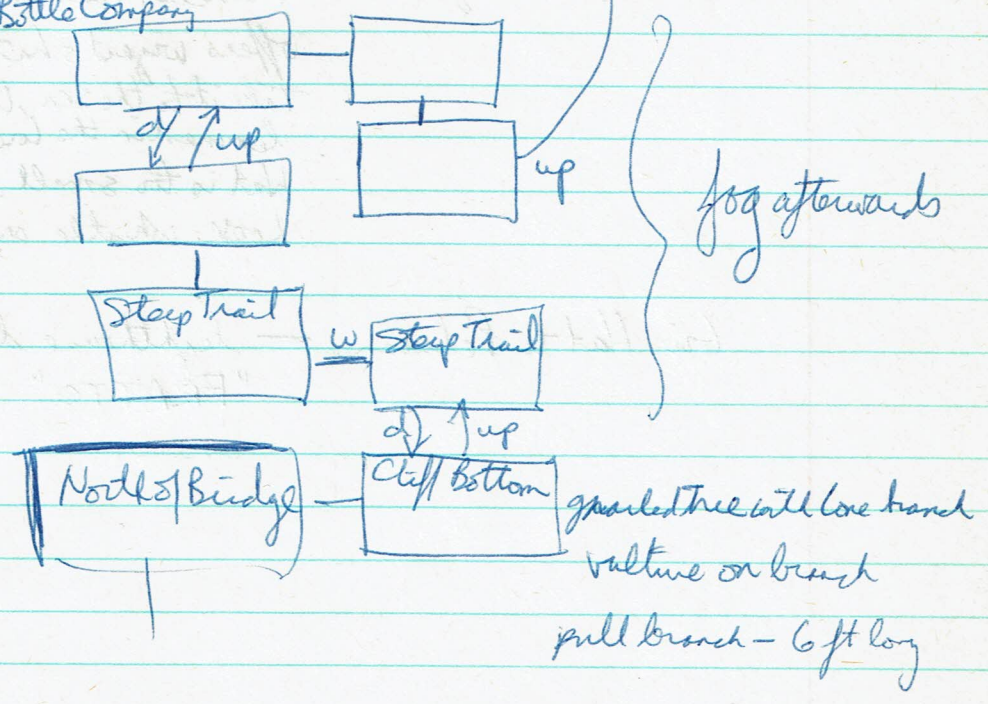 Bottle Company
dn up
up
fog afterwards
Steep Trail
w
Steep Trail
d up
North of Bridge
Cliff Bottom
gnarled tree with lone branch
vulture on branch
pull branch - 6 ft long